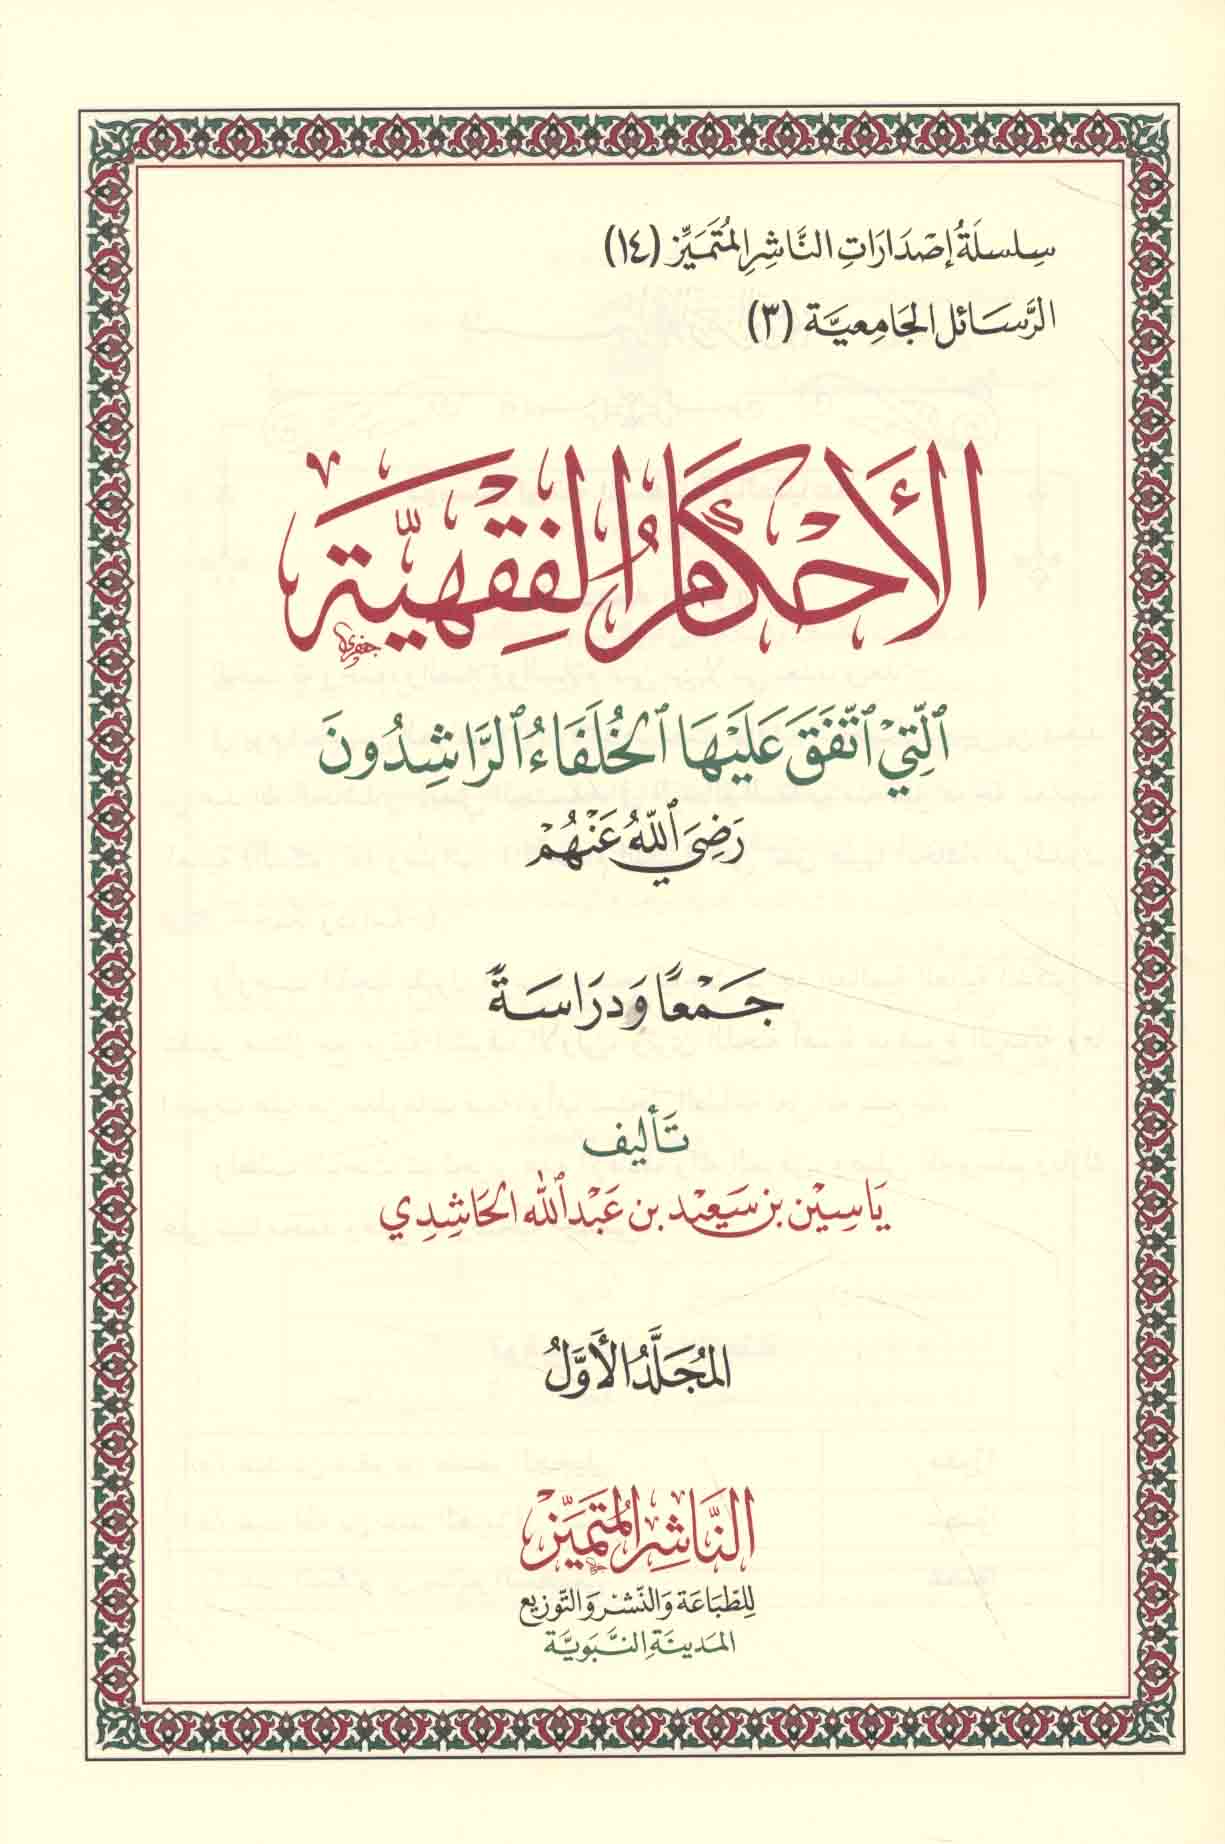 سِلسلَةُ إصْدَارَاتِ النَّاشِرِ المُتَمَيِّز (١٤)
الرَّسَائل الجَامِعيَّة (٣)
الأَحْكَامُ الفِقْهِيَّة
ٱلَّتِيْ ٱتَّفَقَ عَلَيْهَا ٱلخُلَفَاءُ ٱلرَّاشِدُونَ
رَضِيَ ٱللَّهُ عَنْهُمْ
جَمْعًا وَدِرَاسَةً
تَأليف
يَاسِيْن بن سَعِيْد بن عَبْد ٱلله الحَاشِدِي
المُجَلَّدُ الأَوَّلُ
النَّاشِر المُتَمَيِّز
لِلطِّبَاعَة وَالنَّشْر وَالتَّوْزِيع
المَدينَة النَّبَويَّة